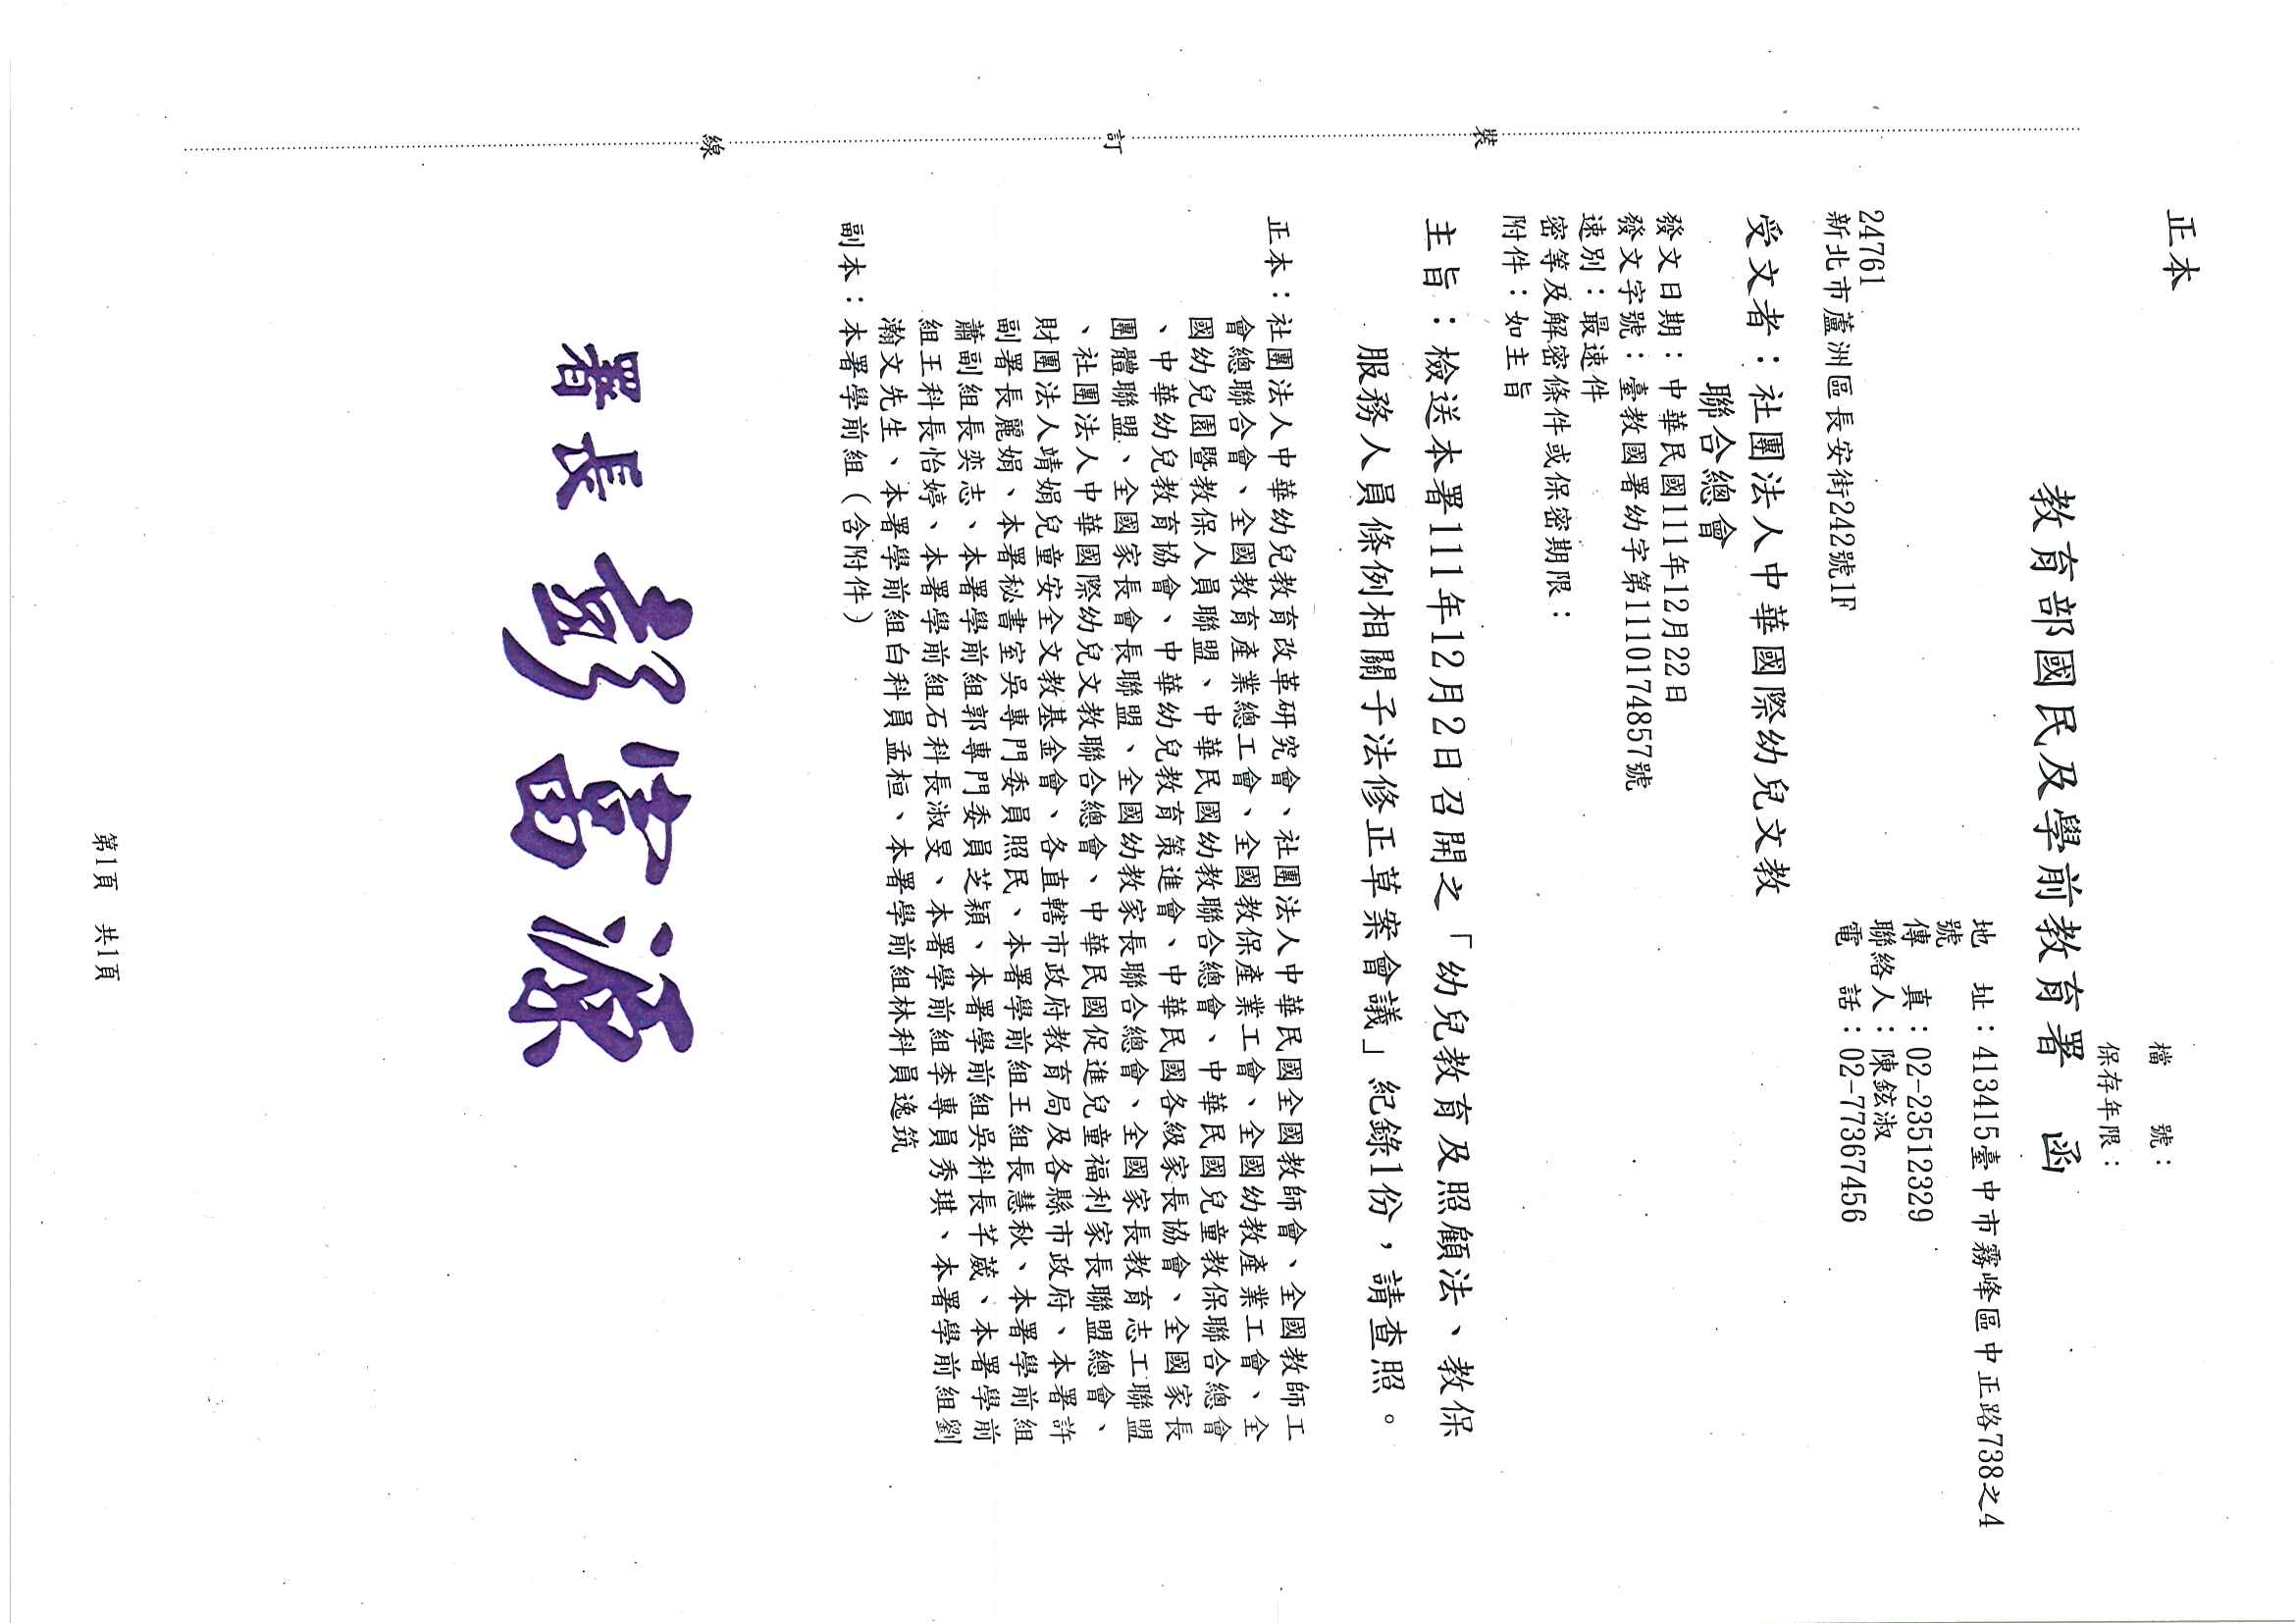 正本
檔　　號：
保存年限：
教育部國民及學前教育署　函
地　　址：413415臺中市霧峰區中正路738之4
號
傳　　真：02-23512329
聯絡人：陳鉉淑
電　　話：02-77367456
24761
新北市蘆洲區長安街242號1F
受文者：社團法人中華國際幼兒文教
聯合總會
發文日期：中華民國111年12月22日
發文字號：臺教國署幼字第1110174857號
速別：最速件
密等及解密條件或保密期限：
附件：如主旨
主旨：檢送本署111年12月2日召開之「幼兒教育及照顧法、教保
服務人員條例相關子法修正草案會議」紀錄1份，請查照。
正本：社團法人中華幼兒教育改革研究會、社團法人中華民國全國教師會、全國教師工
會總聯合會、全國教育產業總工會、全國教保產業工會、全國幼教產業工會、全
國幼兒園暨教保人員聯盟、中華民國幼教聯合總會、中華民國兒童教保聯合總會
、中華幼兒教育協會、中華幼兒教育策進會、中華民國各級家長協會、全國家長
團體聯盟、全國家長會長聯盟、全國幼教家長聯合總會、全國家長教育志工聯盟
、社團法人中華國際幼兒文教聯合總會、中華民國促進兒童福利家長聯盟總會、
財團法人靖娟兒童安全文教基金會、各直轄市政府教育局及各縣市政府、本署許
副署長麗娟、本署秘書室吳專門委員照民、本署學前組王組長慧秋、本署學前組
蕭副組長奕志、本署學前組郭專門委員芝穎、本署學前組吳科長芊葳、本署學前
組王科長怡婷、本署學前組石科長淑旻、本署學前組李專員秀琪、本署學前組劉
瀚文先生、本署學前組白科員孟桓、本署學前組林科員逸筑
副本：本署學前組（含附件）
署長 彭富源
裝
訂
線
第1頁　共1頁